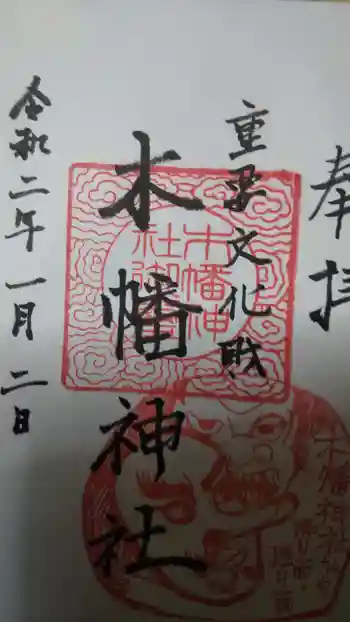 奉拝
重要文化財
木幡神社
令和二年一月二日
木幡神
社御